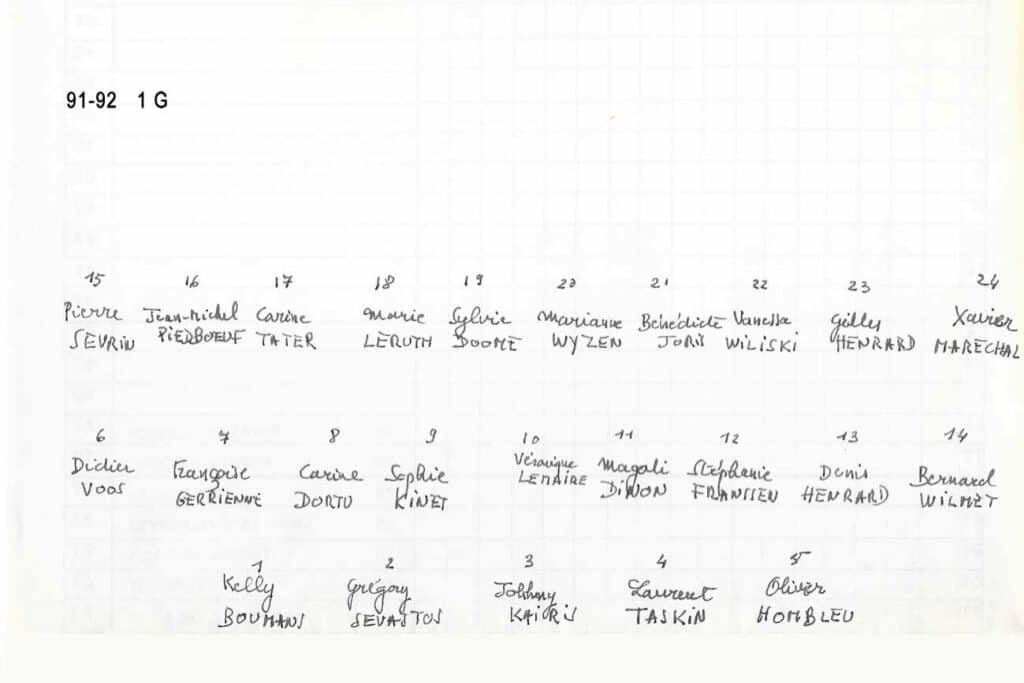 91-92 1 G
15 16 17 18 19 20 21 22 23 24
Pierre Jean-Michel Carine Marie Sylvie Marianne Bénédicte Vanessa Gilles Xavier
SEVRIN PIEDBOEUF TATER LERUTH DOOME WYZEN JORIS WILISKI HENRARD MARECHAL
6 7 8 9 10 11 12 13 14
Didier Françoise Carine Sophie Véronique Magali Stéphanie Denis Bernard
VOOS GERRIENNE DORTU KINET LEMAIRE DINON FRANSSEN HENRARD WILMET
1 2 3 4 5
Kelly Grégory Johnny Laurent Olivier
BOUMANS SEVASTOS KAIRIS TASKIN HOMBLEU